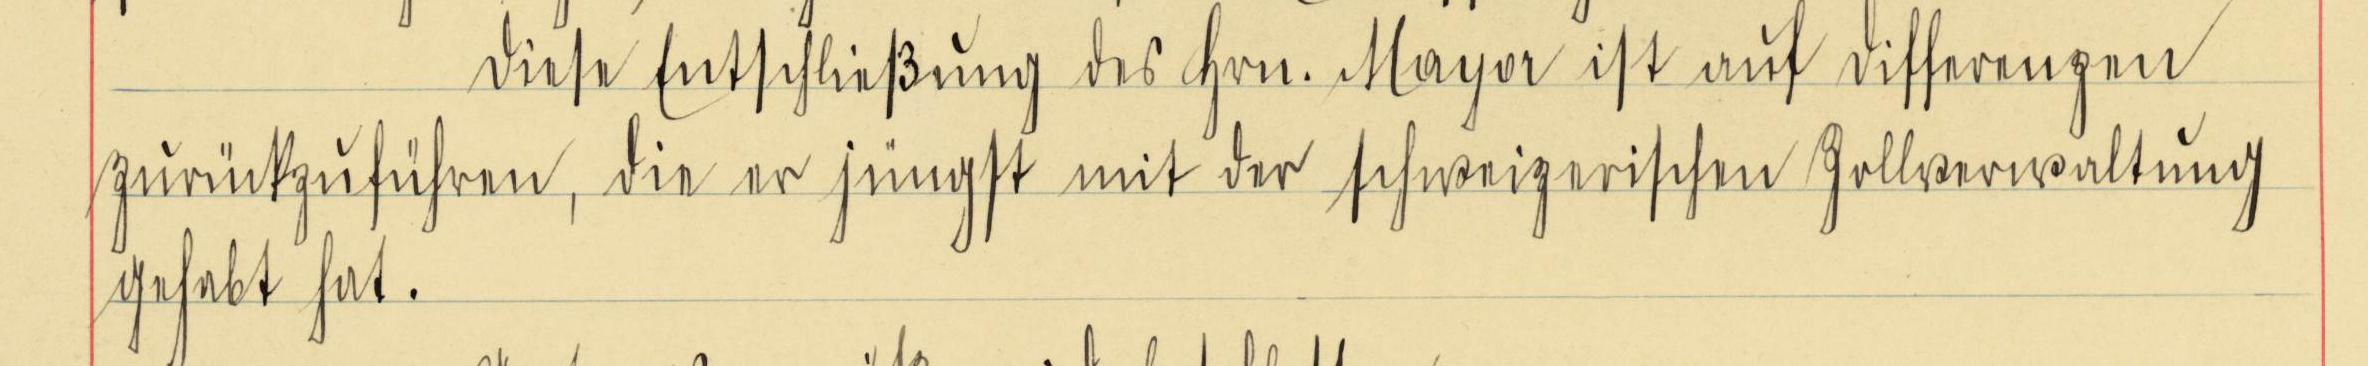 Diese Entschließung des Hrn. Mayor ist auf Differenzen
zurückzuführen, die er jüngst mit der schweizerischen Zollverwaltung
gehabt hat.